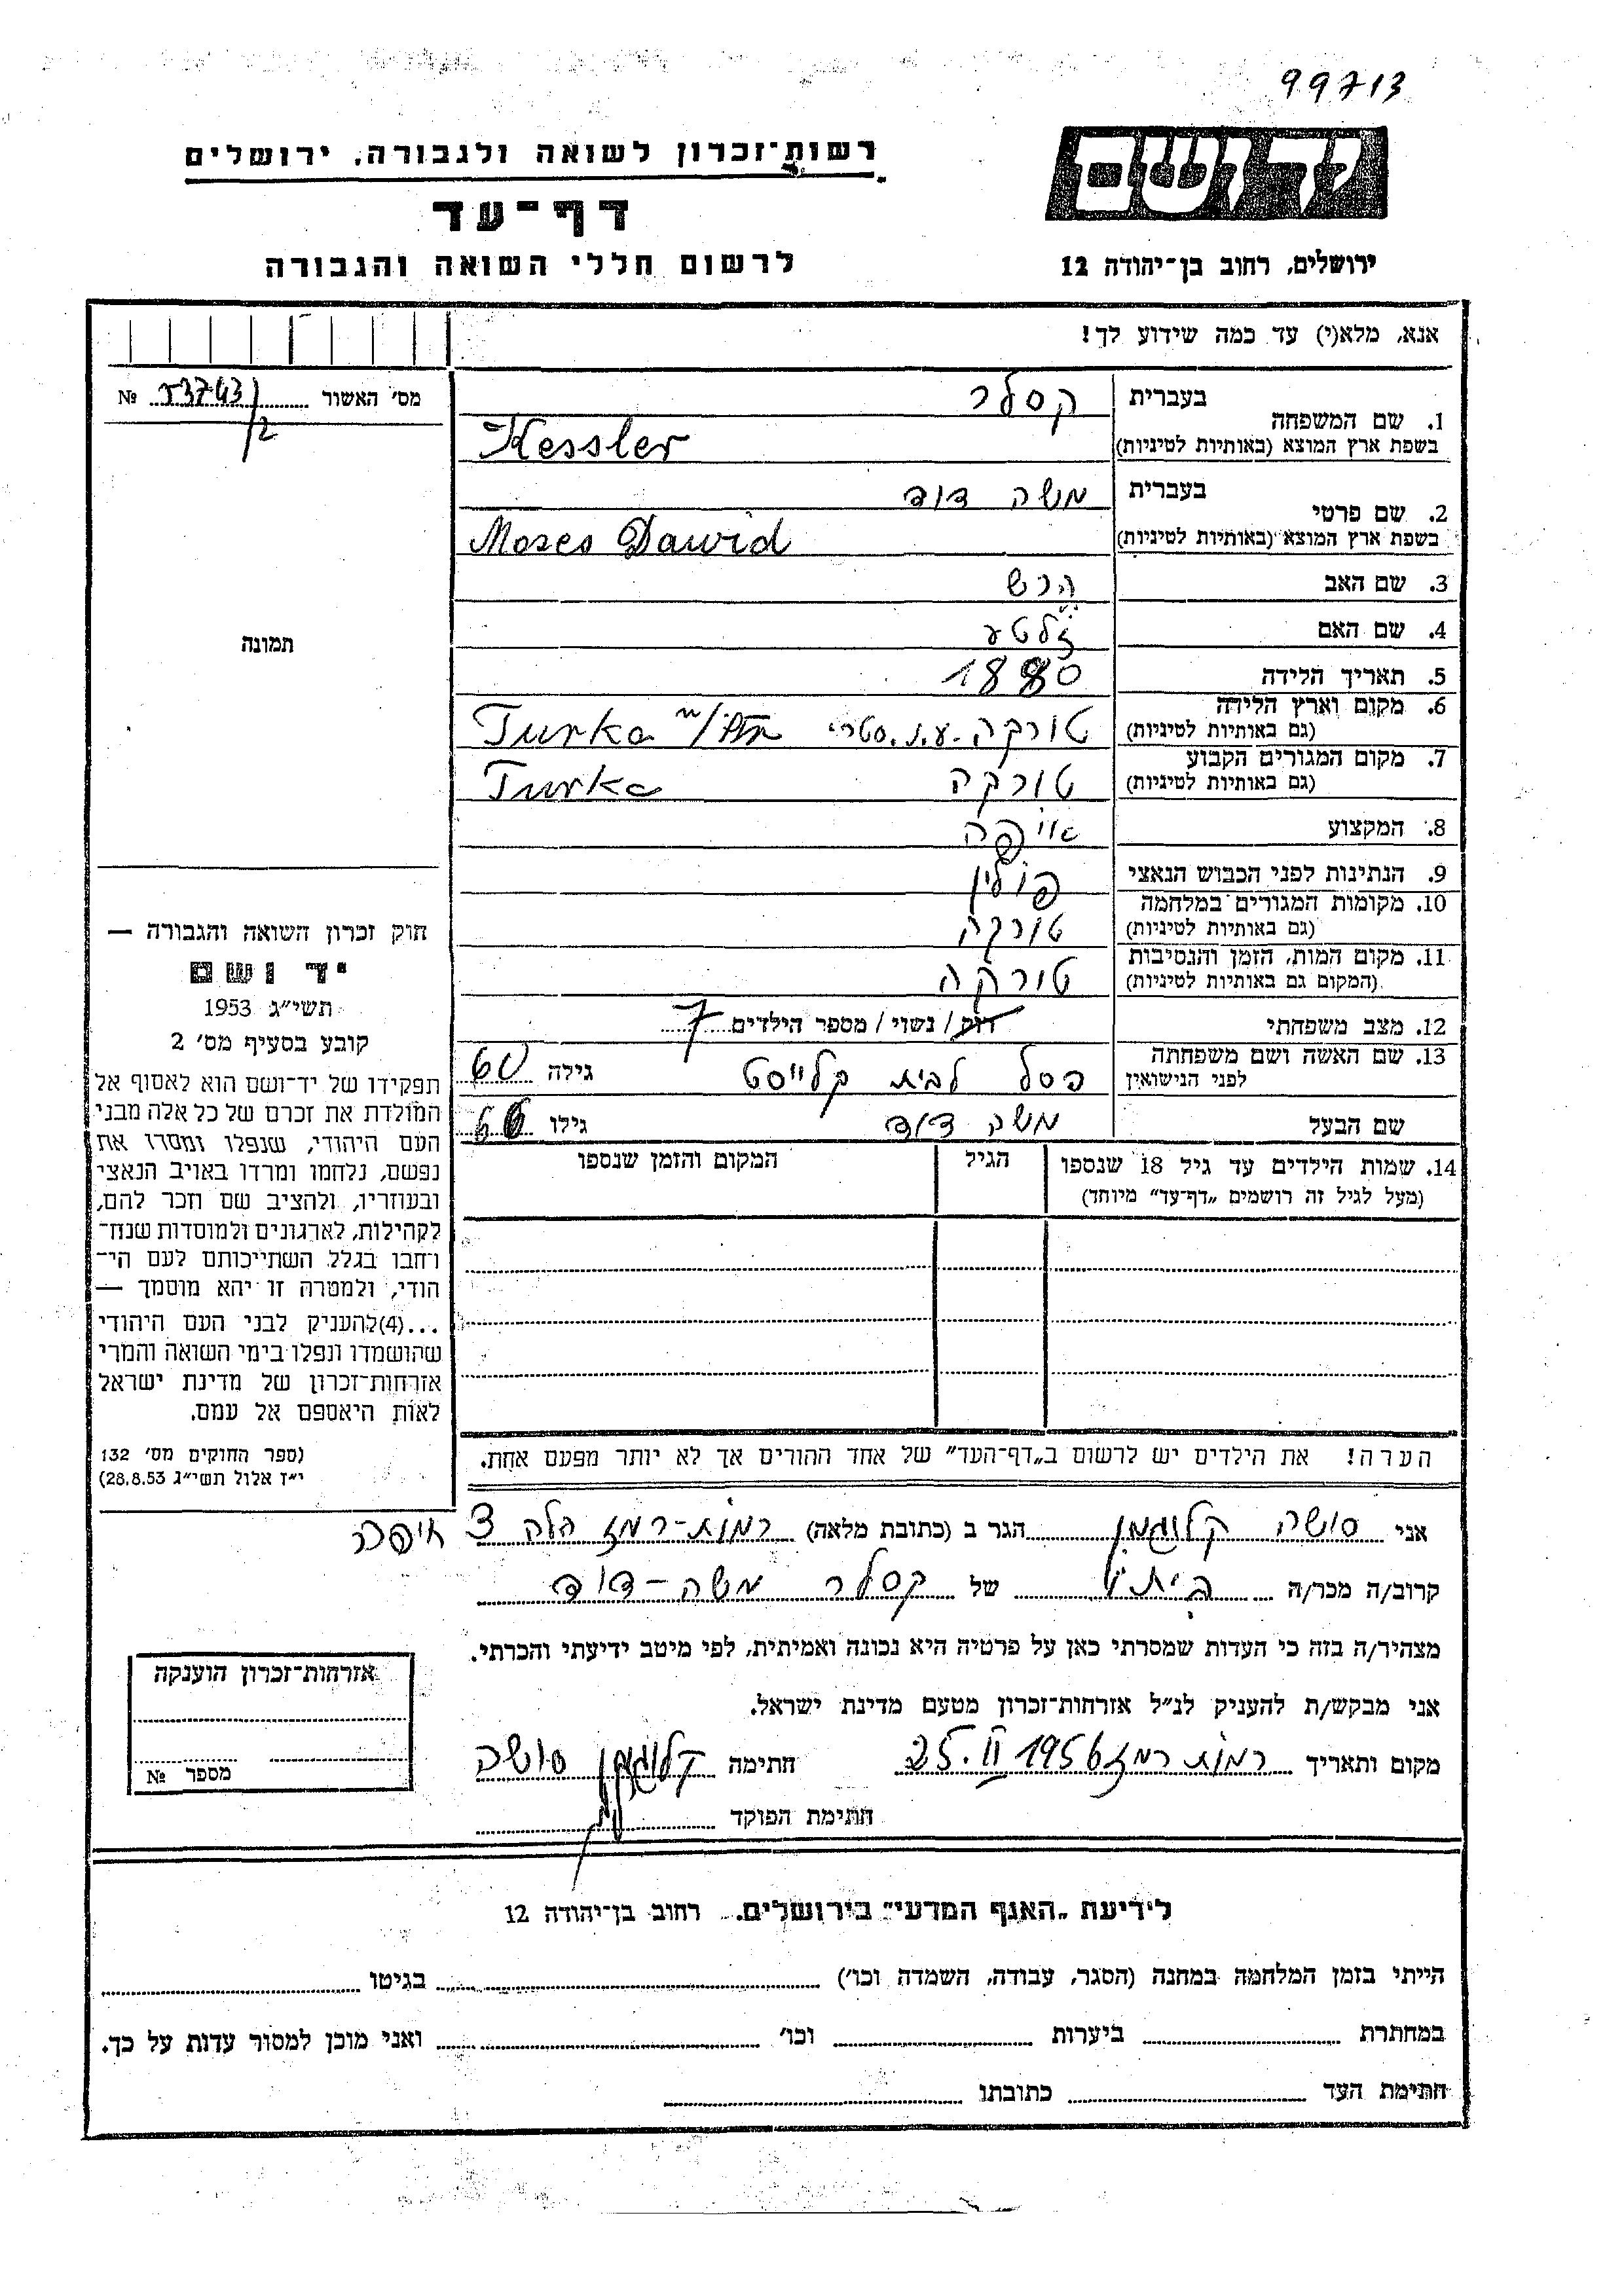 99713
יד ושם
רשות־זכרון לשואה ולגבורה, ירושלים
דף־עד
לרשום חללי השואה והגבורה
ירושלים, רחוב בן־יהודה 12
אנא, מלא(י) עד כמה שידוע לך!
מס׳ האשור 53743/2 №
1. שם המשפחה
בעברית קסלר
בשפת ארץ המוצא (באותיות לטיניות) Kessler
2. שם פרטי
בעברית משה דוד
בשפת ארץ המוצא (באותיות לטיניות) Moses Dawid
3. שם האב הרש
4. שם האם זלטע
5. תאריך הלידה 1880
6. מקום וארץ הלידה
(גם באותיות לטיניות) טורקה ע.נ. סטרי Turka n/Str
7. מקום המגורים הקבוע
(גם באותיות לטיניות) טורקה Turka
8. המקצוע אופה
9. הנתינות לפני הכבוש הנאצי פולין
10. מקומות המגורים במלחמה
(גם באותיות לטיניות) טורקה
11. מקום המות, הזמן והנסיבות
(המקום גם באותיות לטיניות) טורקה
12. מצב משפחתי רוק / נשוי / מספר הילדים 7
13. שם האשה ושם משפחתה
לפני הנישואין פסל לבית קלייסט גילה 60
שם הבעל משה דוד גילו
14. שמות הילדים עד גיל 18 שנספו הגיל המקום והזמן שנספו
(מעל לגיל זה רושמים „דף־עד” מיוחד)
הערה! את הילדים יש לרשום ב„דף־העד” של אחד ההורים אך לא יותר מפעם אחת.
תמונה
חוק זכרון השואה והגבורה —
יד ושם
תשי״ג 1953
קובע בסעיף מס׳ 2
תפקידו של יד־ושם הוא לאסוף אל
המולדת את זכרם של כל אלה מבני
העם היהודי, שנפלו ומסרו את
נפשם, נלחמו ומרדו באויב הנאצי
ובעוזריו, ולהציב שם וזכר להם,
לקהילות, לארגונים ולמוסדות שנח־
רבו בגלל השתייכותם לעם הי־
הודי, ולמטרה זו יהא מוסמך —
...(4)להעניק לבני העם היהודי
שהושמדו ונפלו בימי השואה והמרי
אזרחות־זכרון של מדינת ישראל
לאות היאספם אל עמם.
(ספר החוקים מס׳ 132
י״ז אלול תשי״ג 28.8.53)
אני סושה קלוגמן הגר ב (כתובת מלאה) רמות-רמז הלה 3 חיפה
קרוב/ה מכר/ה ביתו של קסלר משה-דוד
מצהיר/ה בזה כי העדות שמסרתי כאן על פרטיה היא נכונה ואמיתית, לפי מיטב ידיעתי והכרתי.
אני מבקש/ת להעניק לנ״ל אזרחות־זכרון מטעם מדינת ישראל.
מקום ותאריך רמות רמז 25.II 1956 חתימה קלוגמן סושה
חתימת הפוקד
אזרחות־זכרון הוענקה
מספר №
לידיעת „האגף המדעי” בירושלים, רחוב בן־יהודה 12
הייתי בזמן המלחמה במחנה (הסגר, עבודה, השמדה וכו׳) בגיטו
במחתרת ביערות וכו׳ ואני מוכן למסור עדות על כך.
חתימת העד כתובתו